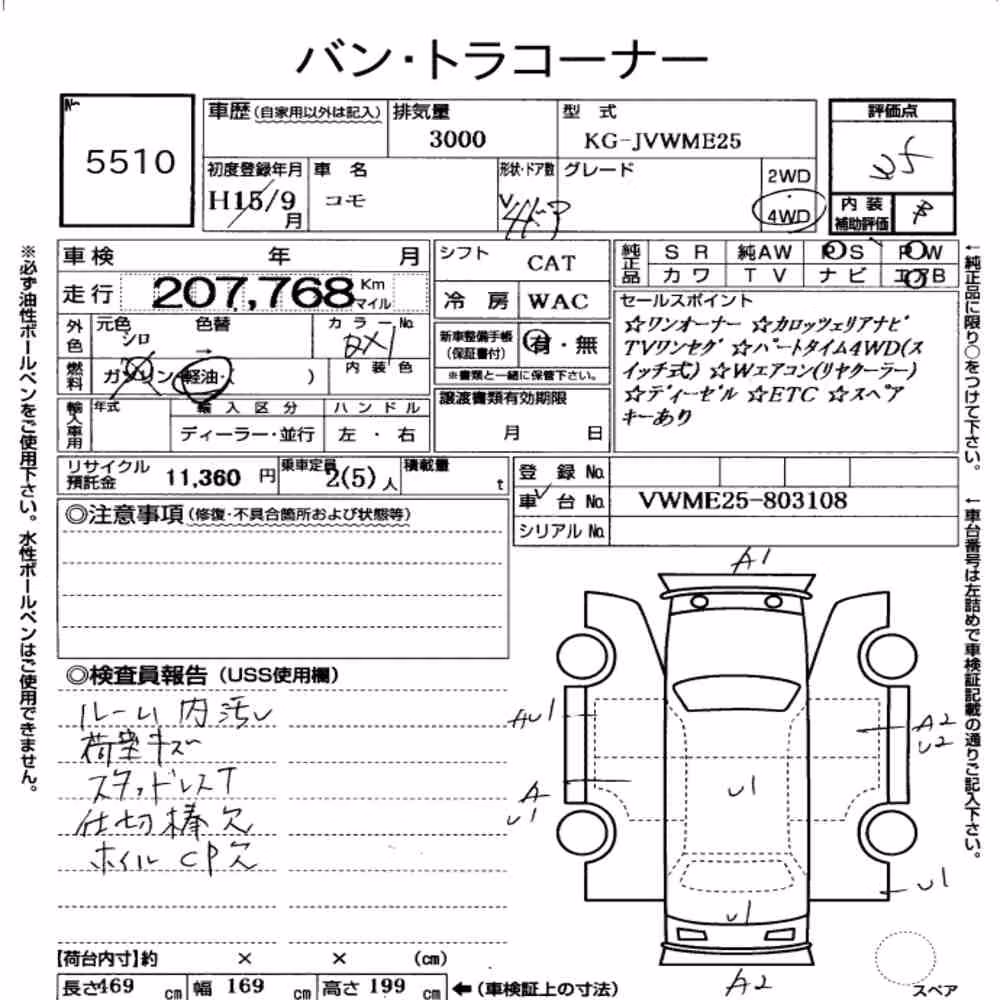 バン・トラコーナー
No.
5510
車歴(自家用以外は記入)
排気量
3000
型 式
KG-JVWME25
評価点
初度登録年月
H15/9
月
車 名
コモ
形状・ドア数
V
グレード
2WD
4WD
内 装
補助評価
B
車検 年 月
走行 207,768 Km
マイル
シフト
CAT
冷 房 WAC
純正品
S R 純AW P S P W
カ ワ T V ナ ビ エアB
外色
元色
シロ
色替
→
カ ラ ー No.
新車整備手帳
(保証書付)
有・無
※書類と一緒に保管下さい。
セールスポイント
☆ワンオーナー ☆カロッツェリアナビ
TVワンセグ ☆パートタイム4WD(ス
イッチ式) ☆Wエアコン(リヤクーラー)
☆ディーゼル ☆ETC ☆スペア
キーあり
燃料
ガソリン・軽油・( )
内 装 色
輸入車用
年式
輸 入 区 分
ディーラー・並行
ハ ン ド ル
左 ・ 右
譲渡書類有効期限
月 日
リサイクル
預託金
11,360 円
乗車定員
2(5)人
積載量
t
登 録 No.
車 台 No. VWME25-803108
シリアル No.
◎注意事項(修復・不具合箇所および状態等)
◎検査員報告(USS使用欄)
ルーム内汚レ
荷室キズ
スタッドレスT
仕切棒欠
ホイルCP欠
A1
AU1
A
U1
A2
U2
U1
U1
U1
A2
【荷台内寸】約 × × (cm)
長さ469 cm 幅 169 cm 高さ 199 cm ←(車検証上の寸法)
スペア
※必ず油性ボールペンをご使用下さい。水性ボールペンはご使用できません。
←純正品に限り○をつけて下さい。
←車台番号は左詰めで車検証記載の通りご記入下さい。